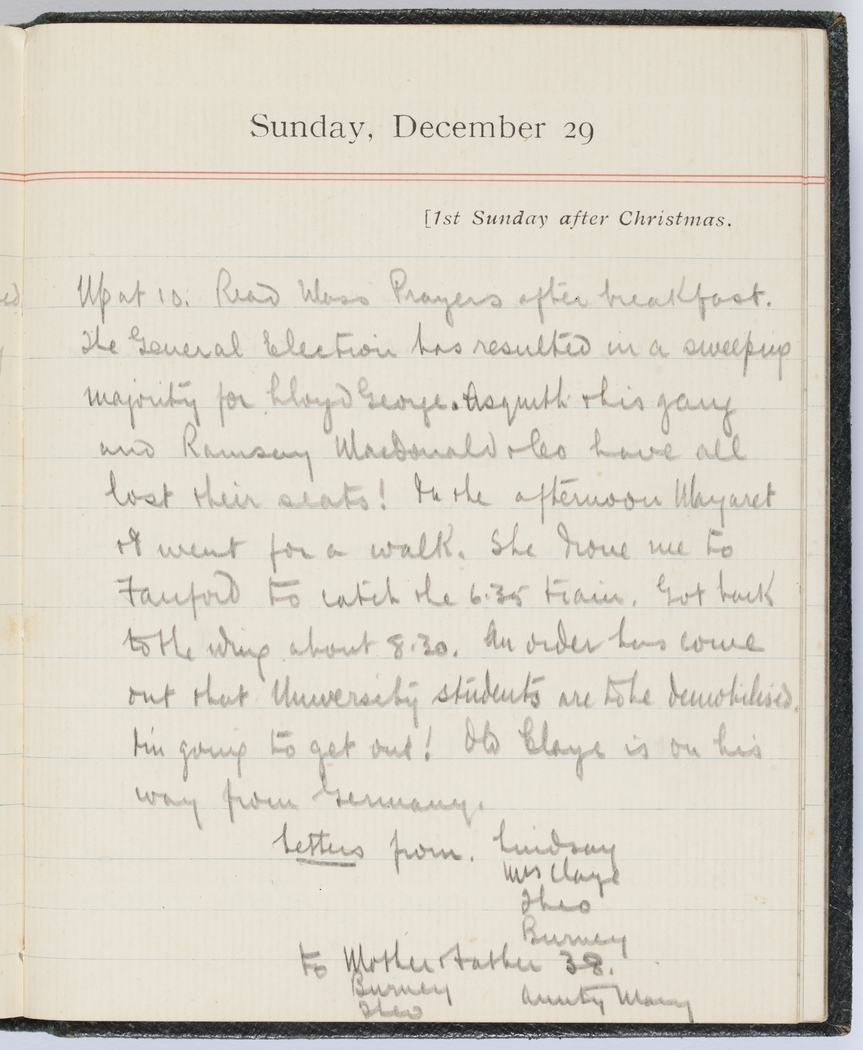 Sunday, December 29
[1st Sunday after Christmas.
ed
Up at 10. Read Mass Prayers after breakfast.
The General Election has resulted in a sweeping
majority for Lloyd George. Asquith & his gang
and Ramsay MacDonald & Co have all
lost their seats! In the afternoon Margaret
& I went for a walk. She drove me to
to catch the 6.35 train. Got back
to the wing about 8.30. An order has come
out that University students are to be demobilised.
I'm going to get out! Old Claye is on his
way from Germany.
Letters from. Lindsay
Mrs Claye
Theo
Burney
to Mother & Father 38.
Burney Aunty Mary
Theo